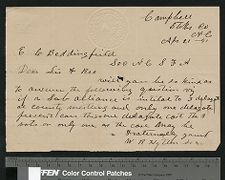 Campbell
Stokes Co
N.C
Apr 21 - 91
E C Beddingfield
Sec N C S F A
Dear Sir & Bro
will you be so kind as
to answer the following question viz
if a Sub alliance is entitled to 3 delegates
to county meeting and only one delegate
present can this one delegate cast the 3
vots or only one as the case may be
Fraternally yours
W R
Sec
TIFFEN Color Control Patches